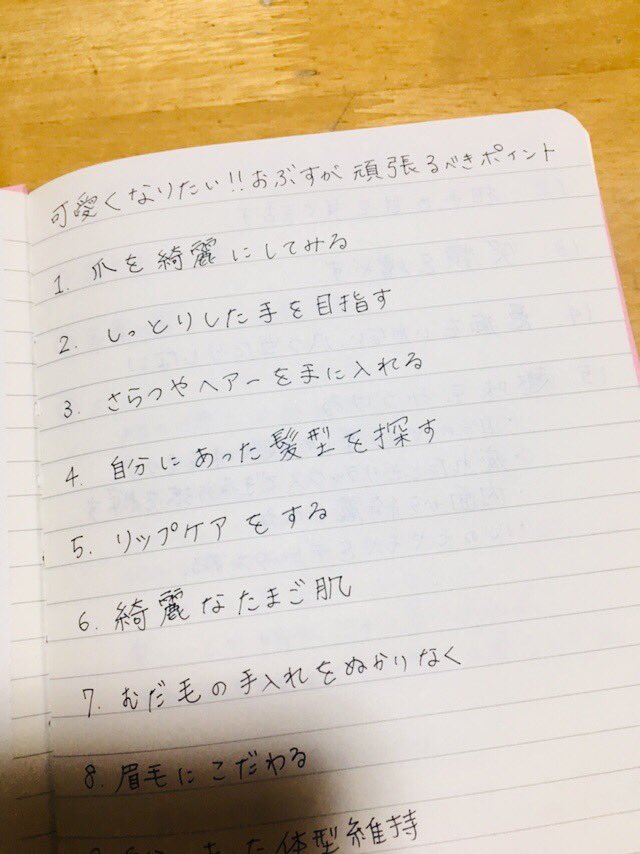 可愛くなりたい!!おぶすが頑張るべきポイント
1. 爪を綺麗にしてみる
2. しっとりした手を目指す
3. さらつやヘアーを手に入れる
4. 自分にあった髪型を探す
5. リップケアをする
6. 綺麗なたまご肌
7. むだ毛の手入れをぬかりなく
8. 眉毛にこだわる
体型維持